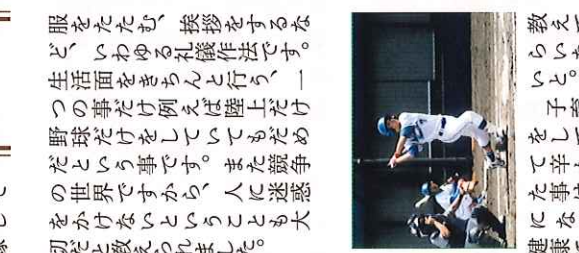 服をたたむ、挨拶をするな
ど、いわゆる礼儀作法です。
生活面をきちんと行う、一
つの事だけ例えば陸上だけ
野球だけをしていてもだめ
だという事です。また競争
の世界ですから、人に迷惑
をかけないということも大
切だと教えられました。
教えて
いと。